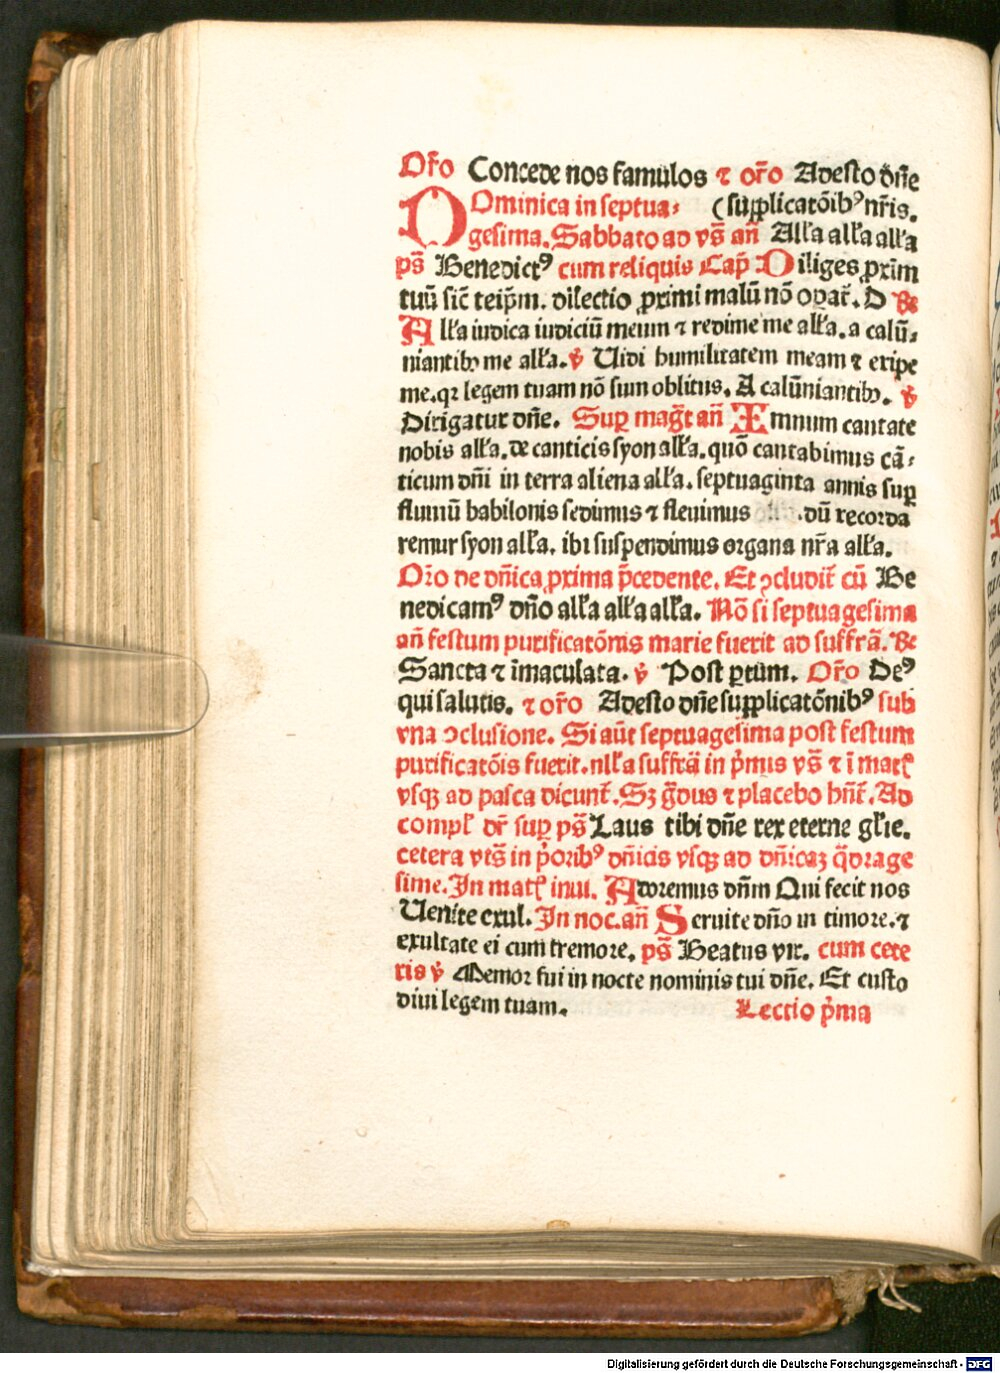 Or̄o Concede nos famulos ⁊ or̄o Adesto dn̄e
DOminica in septua⸗ (supplicatōibꝰ nr̄is.
gesima. Sabbato ad vs̄ an̄ Alľa alľa alľa
ps̄ Benedictꝰ cum reliquis Cap̄ Diliges ꝓxim
tuū sic̄ teip̄m. dilectio ꝓximi malū nō opaȓ. D R̄
Alľa iudica iudiciū meum ⁊ redime me alľa. a calū⸗
niantibꝫ me alľa. v̄ Uidi humilitatem meam ⁊ eripe
me. qꝛ legem tuam nō sum oblitus. A calūniantibꝫ. v̄
Dirigatur dn̄e. Suꝑ maḡt an̄ Ymnum cantate
nobis alľa. de canticis syon alľa. quō cantabimus cā⸗
ticum dn̄i in terra aliena alľa. septuaginta annis suꝑ
flumū babilonis sedimus ⁊ fleuimus .dū recorda
remur syon alľa. ibi suspendimus organa nr̄a alľa.
Or̄o de dn̄ica ꝓxima p̄cedente. Et ꝯcludiť cū Be
nedicamꝰ dn̄o alľa alľa alľa. Nō si septuagesima
an̄ festum purificatōnis marie fuerit ad suffrā. R̄
Sancta ⁊ īmaculata. v̄ Post ꝑtum. Or̄o Deꝰ
qui salutis. ⁊ or̄o Adesto dn̄e supplicatōnibꝰ sub
vna ꝯclusione. Si aūt septuagesima post festum
purificatōis fuerit. nlľa suffrā in p̄mis vs̄ ⁊ ī matꝭ
vsqꝫ ad pasca dicunť. Sꝫ ḡdus ⁊ placebo hn̄ť. Ad
compľ dr̄ suꝑ ps̄ Laus tibi dn̄e rex eterne gľie.
cetera vts̄ in p̄oribꝰ dn̄icis vsqꝫ ad dn̄icaꝫ q̄drage
sime. In matꝭ inui. Adoremus dn̄m Qui fecit nos
Uenite exul. In noc. an̄ Seruite dn̄o in timore. ⁊
exultate ei cum tremore. ps̄ Beatus vir. cum cete
ris v̄ Memor fui in nocte nominis tui dn̄e. Et custo
diui legem tuam. Lectio p̄ma
Digitalisierung gefördert durch die Deutsche Forschungsgemeinschaft - DFG